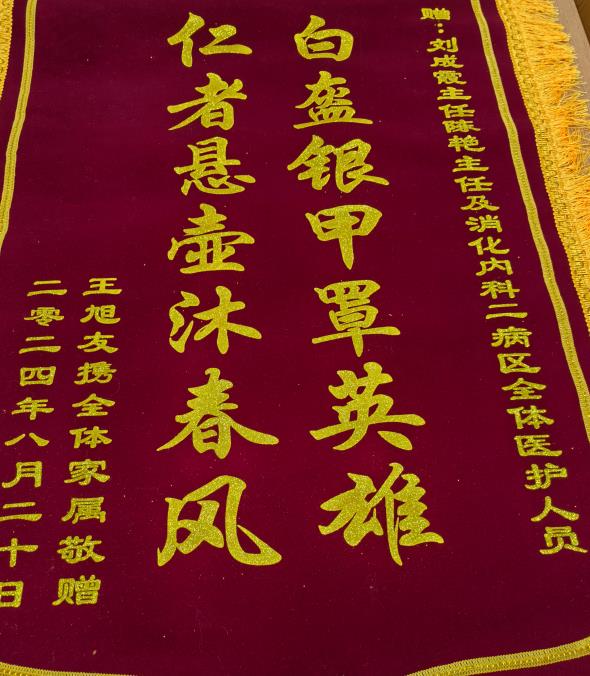 赠：刘成霞主任陈艳主任及消化内科二病区全体医护人员
白盔银甲罩英雄
仁者悬壶沐春风
王旭友携全体家属敬赠
二零二四年八月二十日